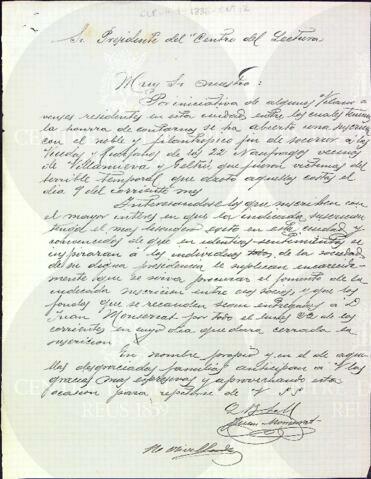 Sr. Presidente del "Centro del Lectura
Muy Sr nuestro:
Por iniciativa de algunos Vilano-
veses residentes en esta ciudad entre los cuales tenemos
la honra de contarnos se ha abierto una suscricion
con el noble y filantropico fin de socorrer á las
Viudas y huerfanos de los 22 Naufragos vecinos
de Villanueva y Geltrú que fueron victimas del
terrible temporal que azoto aquellas costas el
dia 9 del corriente mes
Interesandose los que suscriben con
el mayor interes en que la indicada suscricion
tenga el mas lisongero exito en esta ciudad y
convencidos de que en identicos sentimientos se
inspiraran á los individuos de la sociedad
de su digna presidencia le suplican encarecida-
mente que se sirva procurar el fomento de la
indicada suscricion entre sus socios y que los
fondos que se recauden sean entregados á D
Juan Monserrat por todo el lunes 22 de los
corrientes en cuyo dia quedara cerrada la
suscricion
En nombre propio y en el de aque-
llas desgraciadas familias anticipan á Vds las
gracias mas espresivas y aprovechando esta
ocasion para repetirse de V SS
Q B S M
Juan Monserrat
CENTRO
REUS 1859